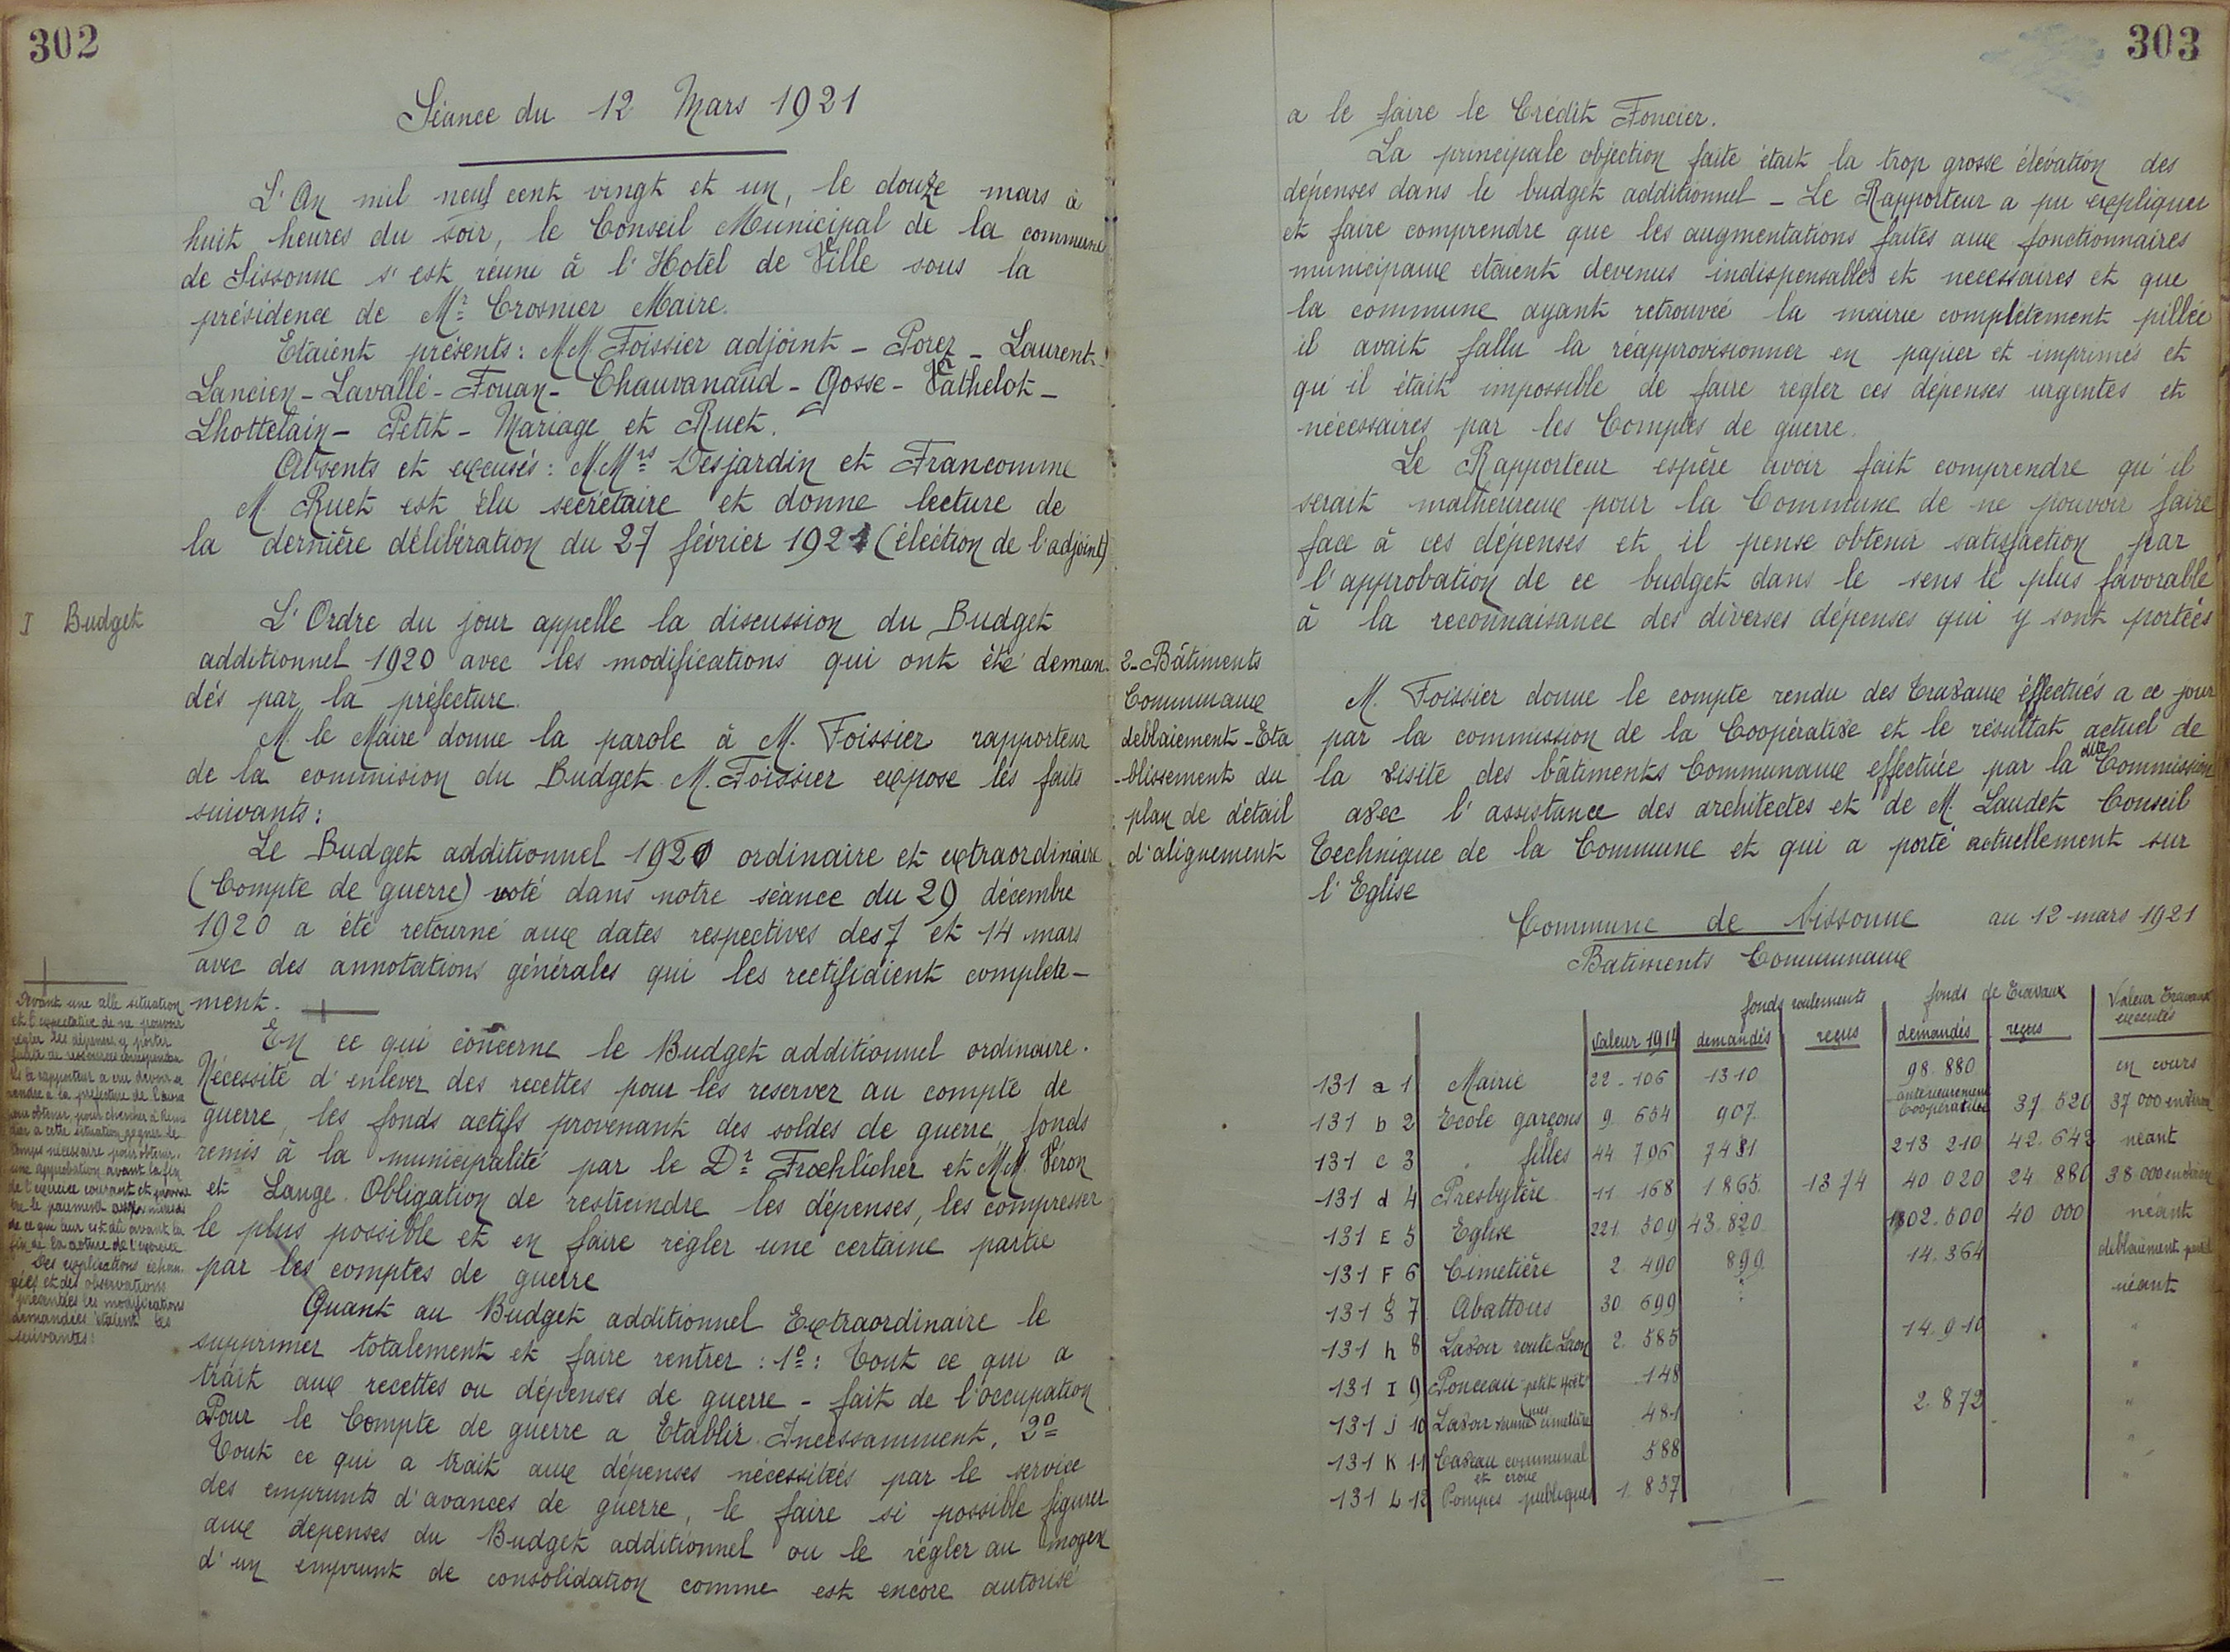 302
Séance du 12 Mars 1921
L'An mil neuf cent vingt et un, le douze mars à
huit heures du soir, le Conseil Municipal de la commune
de Sissonne s'est réuni à l'Hotel de Ville sous la
présidence de Mr Crosnier Maire.
Etaient présents : M.M. Foissier adjoint - Porez - Laurent -
Lancien - Lavallé - Fouan - Chauvanaud - Gosse - Vathelot -
Lhottelain - Petit - Mariage et Ruet.
Absents et excusés : M.Mrs Desjardin et Francomme
M. Ruet est élu secrétaire et donne lecture de
la dernière délibération du 27 février 1921 (éléction de l'adjoint)
I Budget
L'Ordre du jour appelle la discussion du Budget
additionnel 1920 avec les modifications qui ont été deman-
dés par la préfecture.
M. le Maire donne la parole à M. Foissier rapporteur
de la commision du Budget. M. Foissier expose les faits
suivants :
Le Budget additionnel 1920 ordinaire et extraordinaire
(Compte de guerre) voté dans notre séance du 29 décembre
1920 a été retourné aux dates respectives des 7 et 14 mars
avec des annotations générales qui les rectifiaient complète-
ment.
Devant une telle situation
et l'expectative de ne pouvoir
régler les dépenses y portées
faute de ressources
le rapporteur a cru devoir se
rendre à la préfecture de Laon
pour obtenir, pour chercher à Remé
dier à cette situation gagner le
temps nécessaire pour obtenir
une approbation avant la fin
de l'exercice courant et
le paiement
de ce qui leur est dû avant la
fin de la cloture de l'exercice
Des explications échan-
gées et des observations
présentées les modifications
demandées étaient les
suivantes :
En ce qui concerne le Budget additionnel ordinaire.
Nécessité d'enlever des recettes pour les reserver au compte de
guerre, les fonds actifs provenant des soldes de guerre, fonds
remis à la municipalité par le Dr Froehlicher et M.M. Véron
et Lange. Obligation de restreindre les dépenses, les compresser
le plus possible et en faire régler une certaine partie
par les comptes de guerre
Quant au Budget additionnel Extraordinaire le
supprimer totalement et faire rentrer : 1º : Tout ce qui a
trait aux recettes ou dépenses de guerre - fait de l'occupation
Pour le Compte de guerre a Etablir Incessamment. 2º
Tout ce qui a trait aux dépenses nécessitées par le service
des emprunts d'avances de guerre, le faire si possible figurer
aux dépenses du Budget additionnel ou le régler au moyen
d'un emprunt de consolidation comme est encore autorisé
303
a le faire le Crédit Foncier.
La principale objection faite était la trop grosse élévation des
dépenses dans le budget additionnel - Le Rapporteur a pu expliquer
et faire comprendre que les augmentations faites aux fonctionnaires
municipaux etaient devenus indispensables et necessaires et que
la commune ayant retrouvée la mairie complètement pillée
il avait fallu la réapprovisionner en papier et imprimés et
qu'il était impossible de faire regler ces dépenses urgentes et
nécessaires par les Comptes de guerre.
Le Rapporteur espère avoir fait comprendre qu'il
serait malheureux pour la Commune de ne pouvoir faire
face à ces dépenses et il pense obtenir satisfaction par
l'approbation de ce budget dans le sens le plus favorable
à la reconnaisance des diverses dépenses qui y sont portées
2 - Bâtiments
Communaux
deblaiement - Eta
-blissement du
plan de détail
d'alignement
M. Foissier donne le compte rendu des travaux éffectués a ce jour
par la commission de la Coopérative et le résultat actuel de
la visite des bâtiments Communaux effectuée par la dite Commission
avec l'assistance des architectes et de M. Laudet Conseil
Technique de la Commune et qui a porté actuellement sur
l'Eglise
Commune de Sissonne au 12 mars 1921
Batiments Communaux
fonds roulements fonds de travaux Valeur travaux
Valeur 1914 demandés reçus demandés reçus executés
131 a 1 Mairie 22.106 1310 98.880 en cours
131 b 2 Ecole garçons 9.654 907 antérieurement Coopérative 37 520 37 000 environ
131 c 3 " filles 44 796 7481 213 210 42.642 néant
131 d 4 Presbytère 11 168 1865 1374 40 020 24 880 38 000 environ
131 E 5 Eglise 221 509 43.820 1302.500 40 000 néant
131 F 6 Cimetière 2.490 899 14.364 deblaiement partiel
131 g 7 Abattoirs 30 699 néant
131 h 8 Lavoir route Laon 2.585 14.910 "
131 I 9 Ponceau petit 148 "
131 J 10 Lavoir cimetière 481 2.872 "
131 K 11 Caveau communal et croix 588 "
131 L 12 Pompes publiques 1.857 "